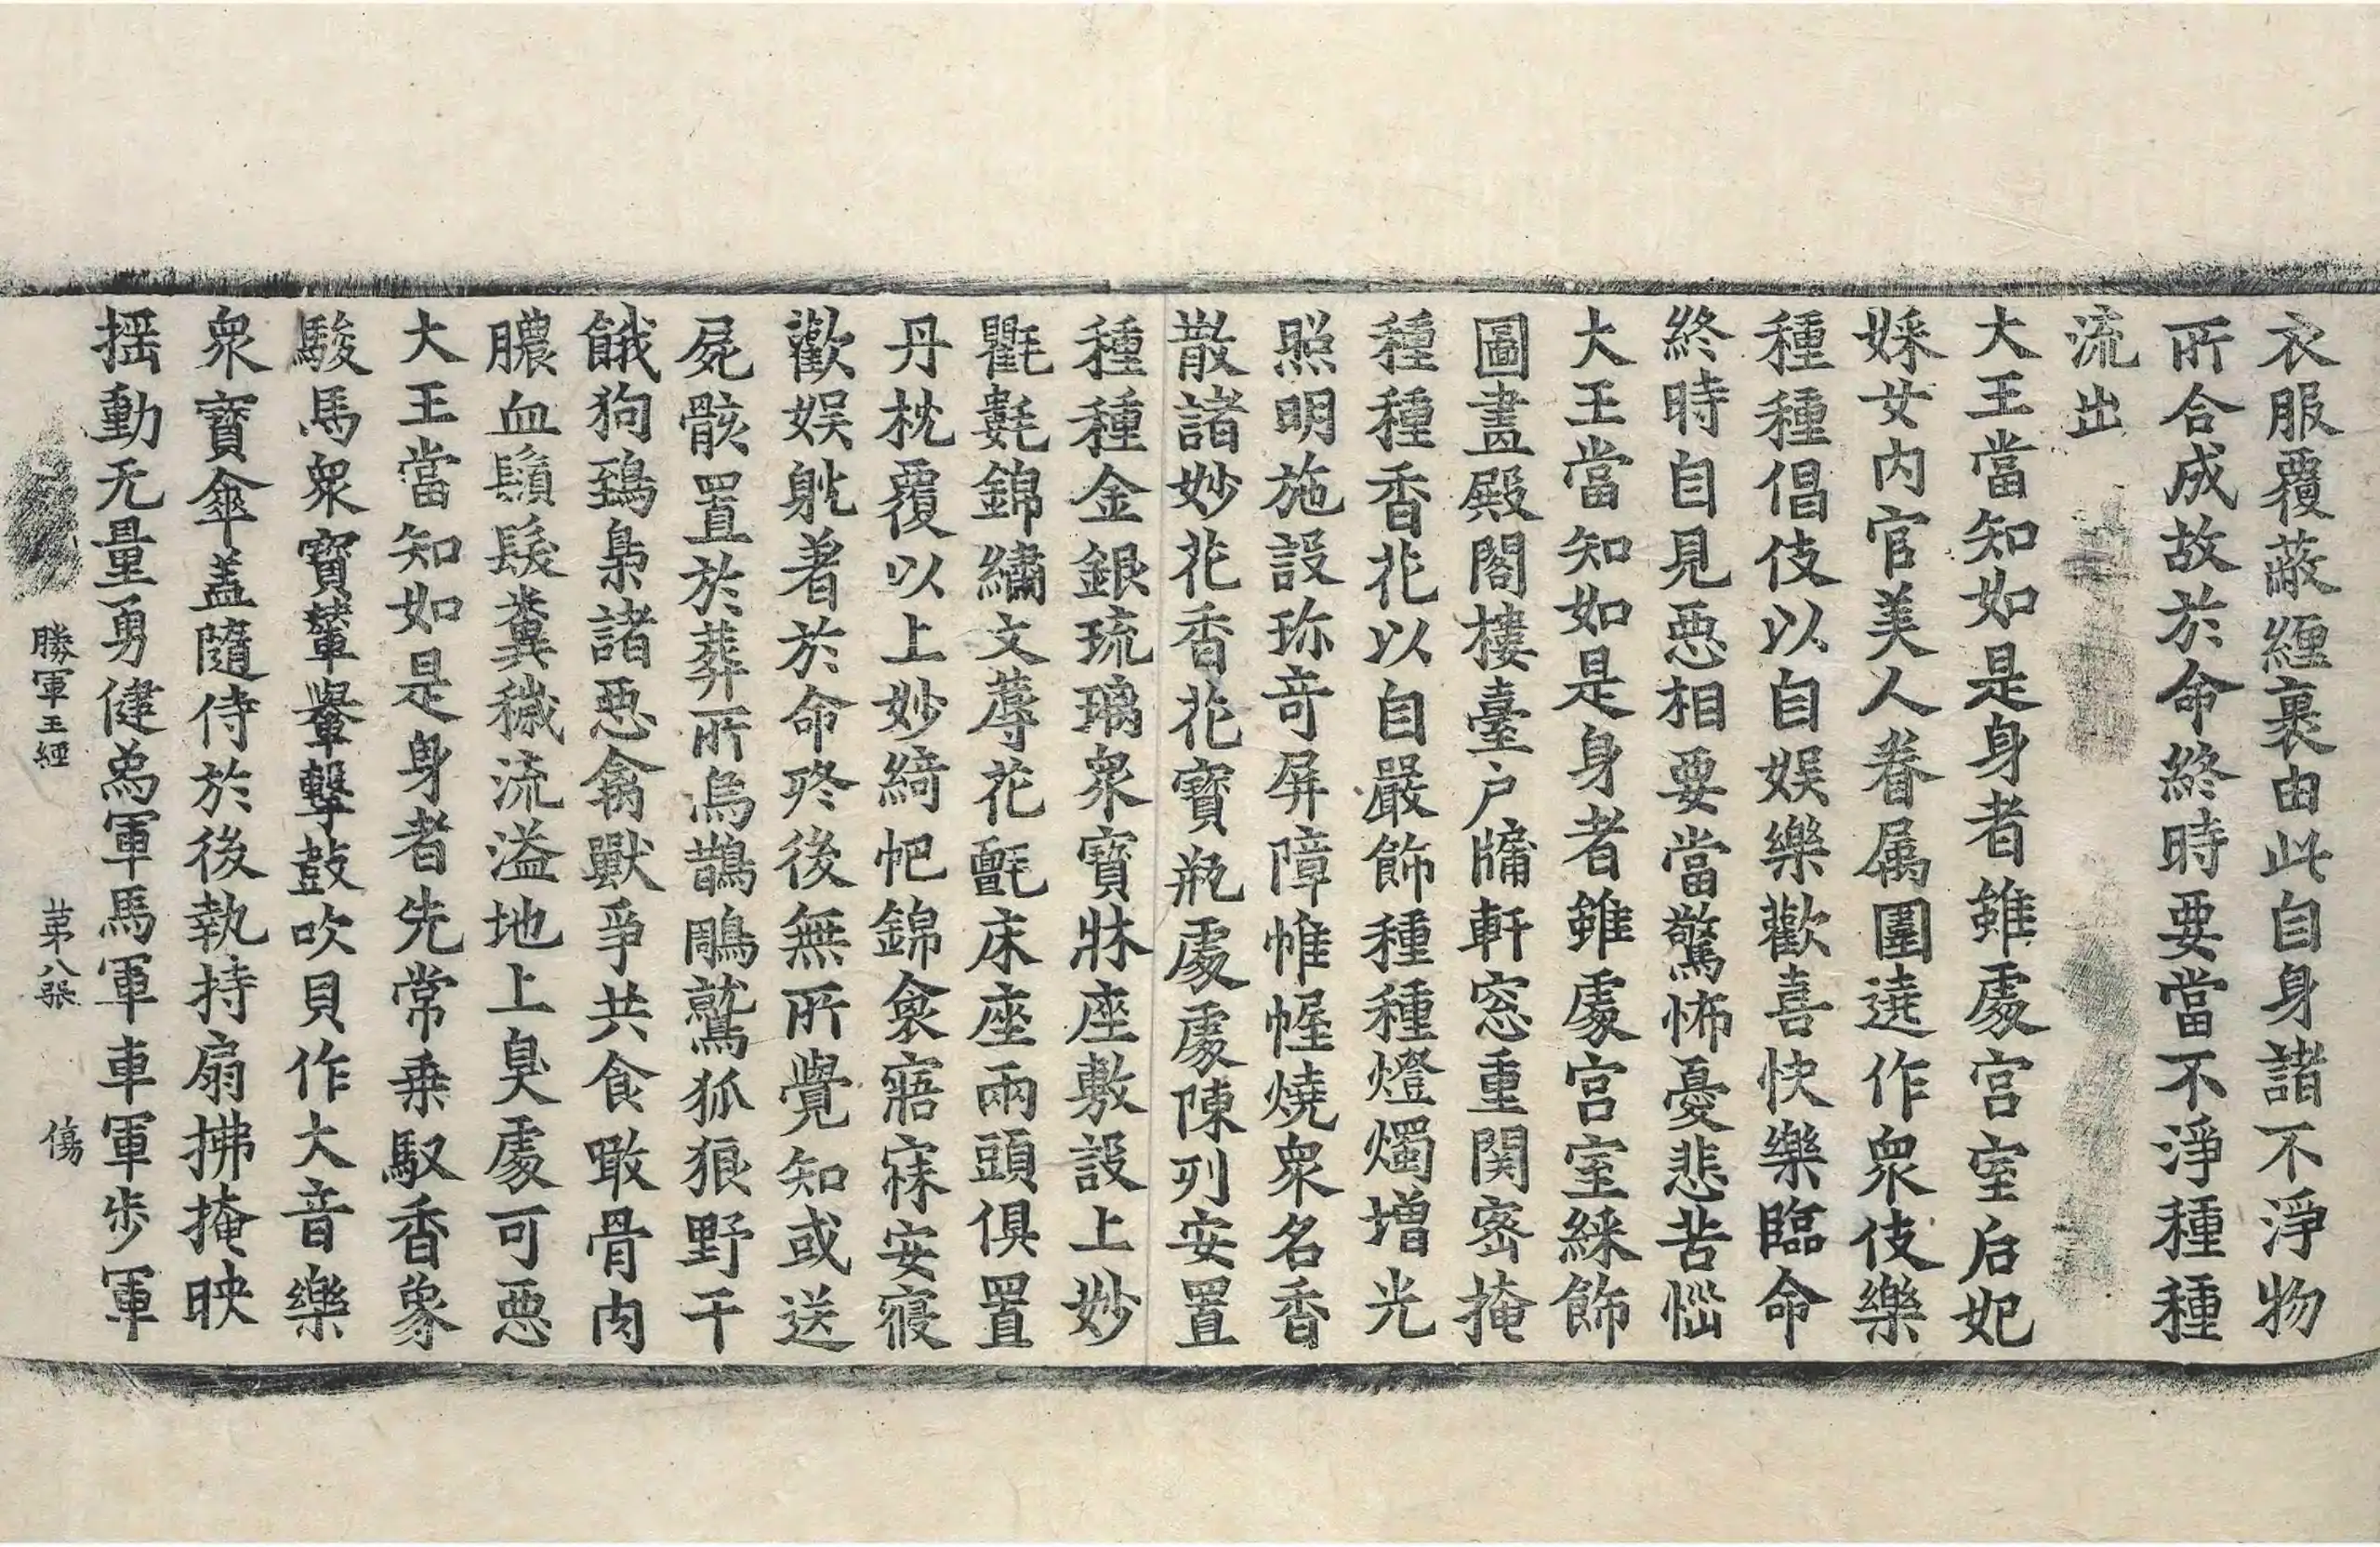 衣服覆蔽纏裹由此自身諸不淨物
所合成故於命終時要當不淨種種
流出
大王當知如是身者雖處宮室后妃
婇女内官美人眷属圍遶作衆伎樂
種種倡伎以自娯樂歡喜快樂臨命
終時自見惡相要當驚怖憂悲苦惱
大王當知如是身者雖處宮室綵飾
圖畫殿閣樓臺户牖軒窓重関密掩
種種香花以自嚴飾種種燈燭增光
照明施設珎竒屏障帷幄燒衆名香
散諸妙花香花寶瓶處處陳列安置
種種金銀琉璃衆寶牀座敷設上妙
氍㲣錦繡文蓐花氈床座兩頭俱置
丹枕覆以上妙綺帊錦衾寤寐安寢
歡娯躭著於命終後無所覺知或送
屍骸置於葬所烏鵲鵰鷲狐狼野干
餓狗鵄梟諸惡禽獸爭共食噉骨肉
膿血鬚髮糞穢流溢地上臭處可惡
大王當知如是身者先常乗馭香象
駿馬衆寶輦轝擊鼓吹貝作大音樂
衆寶傘盖隨侍於後執持扇拂掩映
揺動无量勇健爲軍馬軍車軍步軍
勝軍王經 苐八張 傷